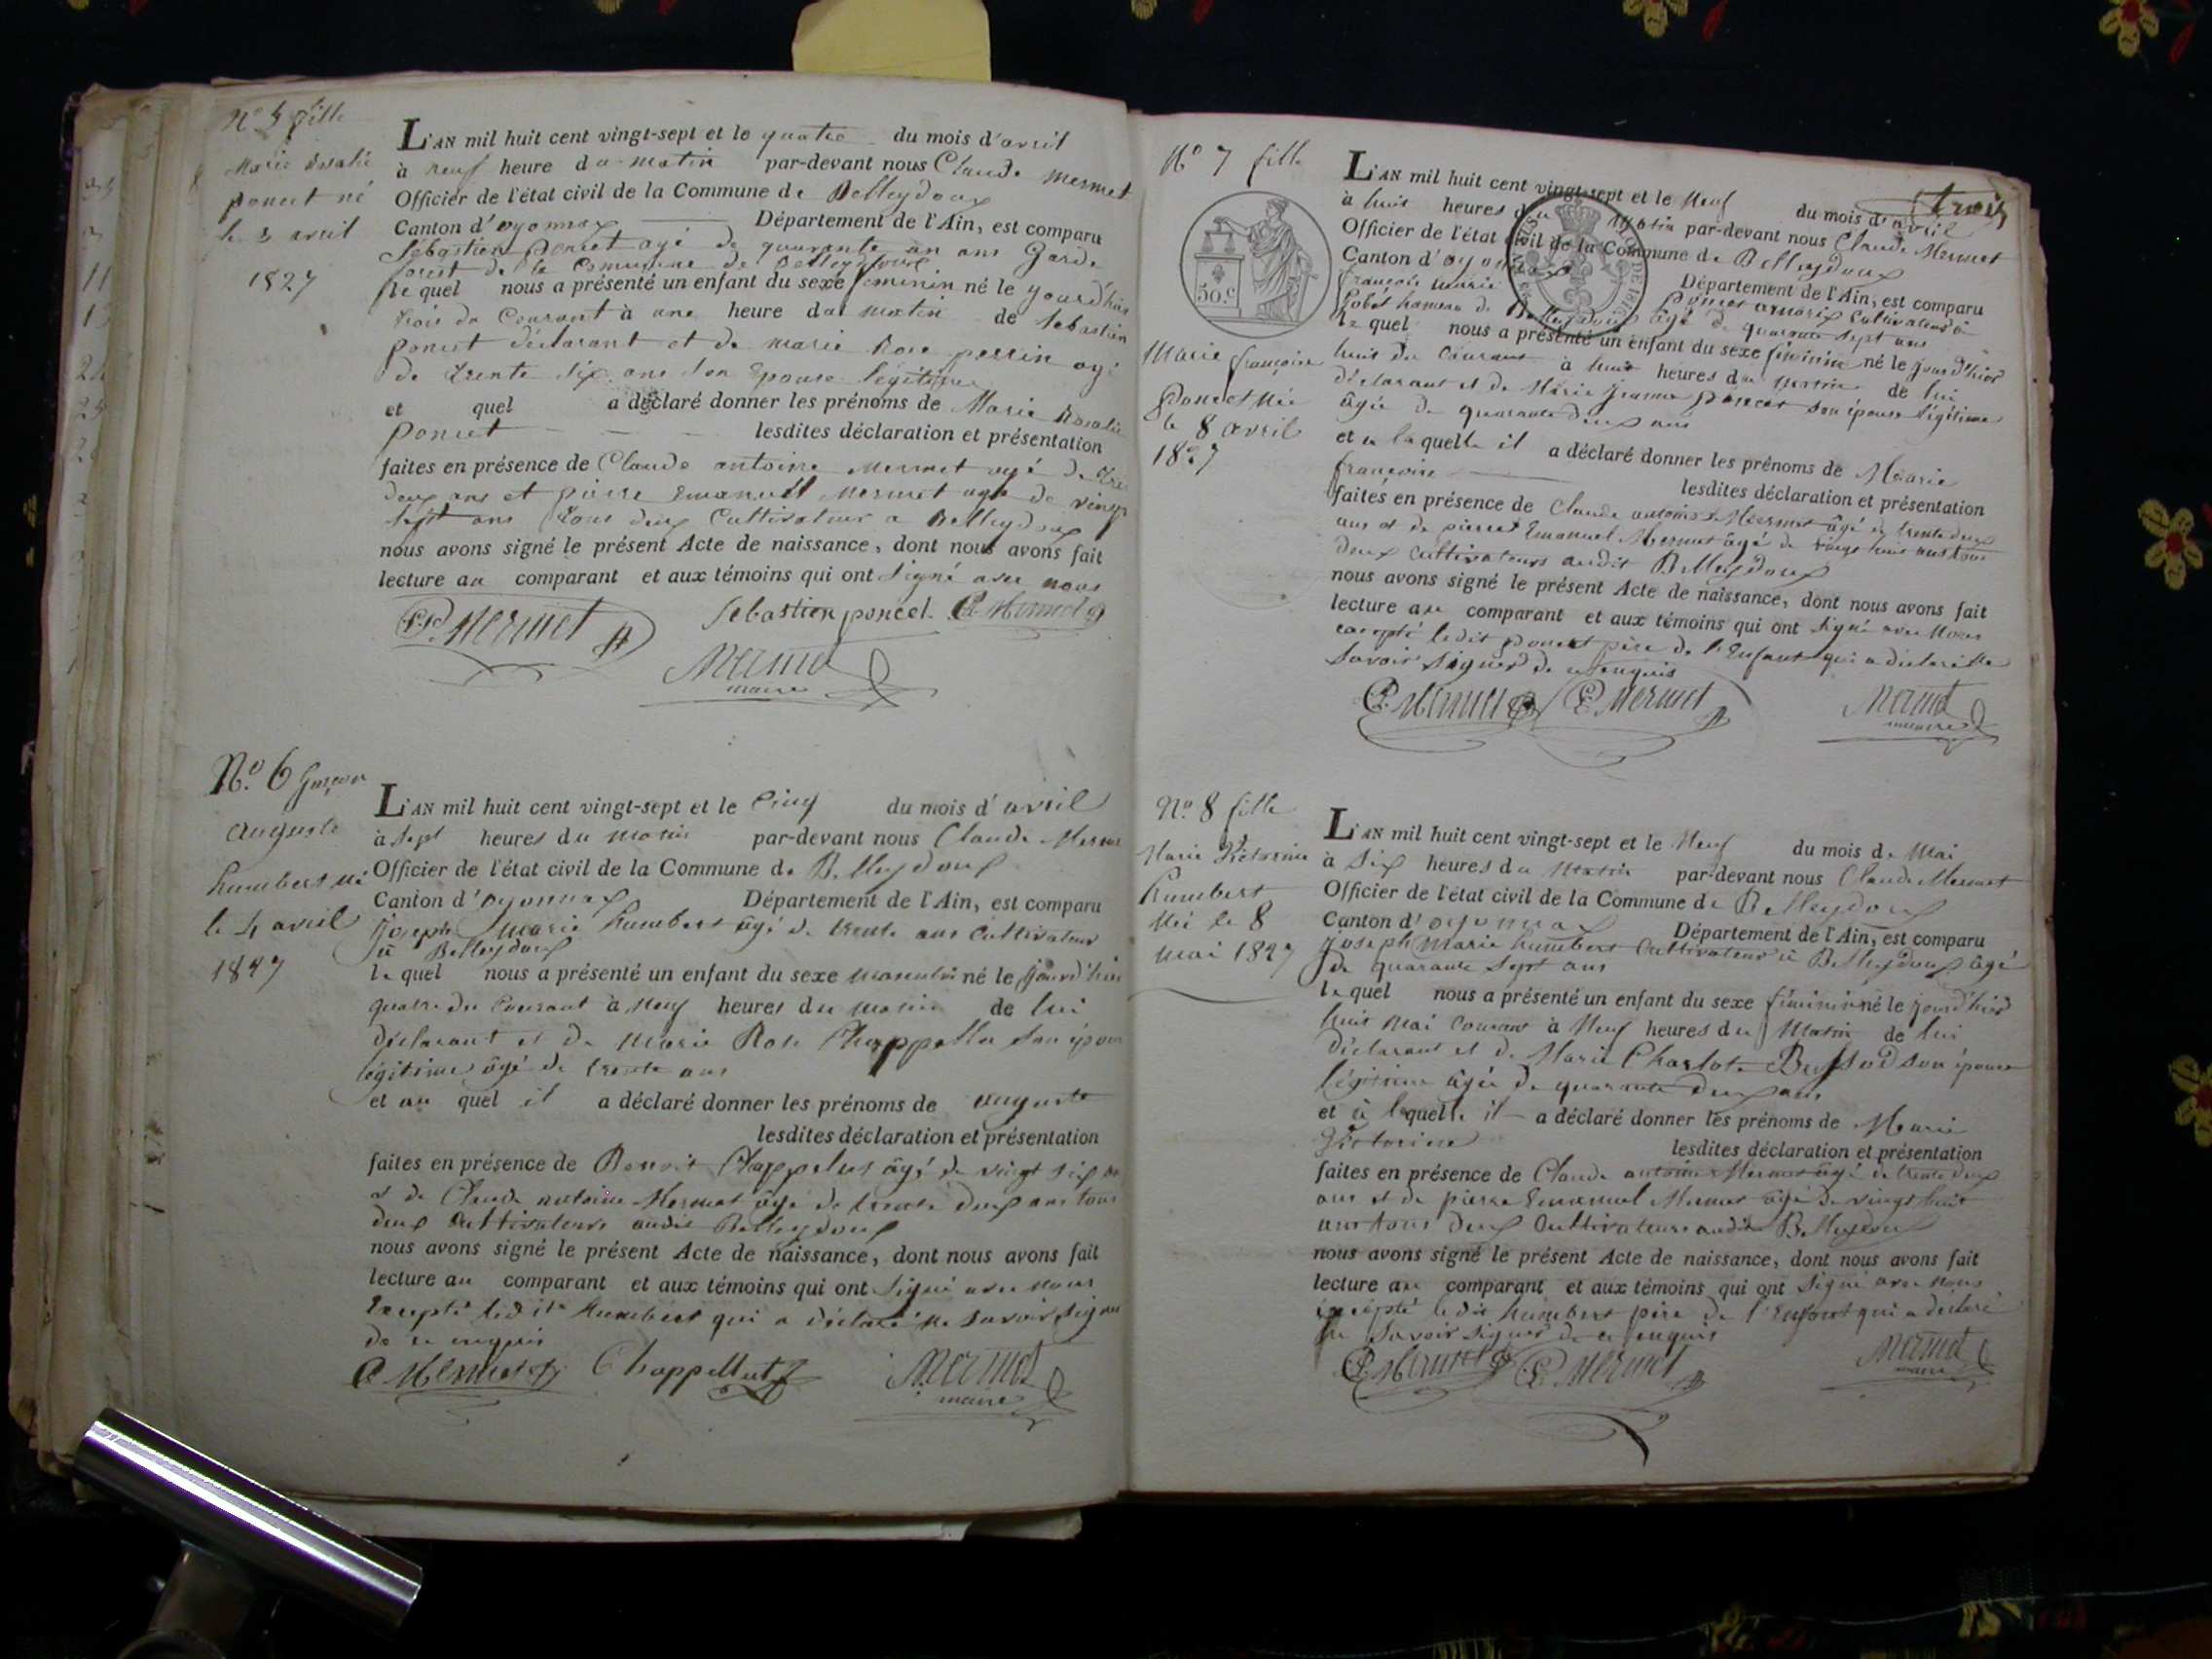 N° 5 fille
Marie Rosalie
Poncet né
le 3 avril
1827
L'AN mil huit cent vingt-sept et le quatre du mois d'avril
à neuf heure du matin par-devant nous Claude Mermet
Officier de l'état civil de la Commune de Belleydoux
Canton d'oyonnax Département de l'Ain, est comparu
Sebastien Poncet agé de quarante un ans Garde
forest de la Commune de Belleydoux
le quel nous a présenté un enfant du sexe feminin né le
trois du Courant à une heure du matin de Sebastien
Poncet déclarant et de marie Rose perrin agé
de trente six ans son Epouse légitime
et quel a déclaré donner les prénoms de Marie Rosalie
Poncet lesdites déclaration et présentation
faites en présence de Claude antoine Mermet agé de
deux ans et pierre Emanuel Mermet age de vingt
sept ans tous deux Cultivateur a Belleydoux
nous avons signé le présent Acte de naissance, dont nous avons fait
lecture au comparant et aux témoins qui ont signé avec nous
Mermet Sebastien poncet Mermet
Mermet
maire
N° 6 garçon
auguste
humbert né
le 4 avril
L'AN mil huit cent vingt-sept et le Cinq du mois d'avril
à sept heures du matin par-devant nous Claude Mermet
Officier de l'état civil de la Commune de Belleydoux
Canton d'oyonnax Département de l'Ain, est comparu
Joseph Marie humbert âgé de trente ans Cultivateur
à Belleydoux
le quel nous a présenté un enfant du sexe masculin né le jourd'hier
quatre du Courant à neuf heures du matin de lui
déclarant et de Marie Rose Chappellu son épouse
légitime âgé de trente ans
et au quel il a déclaré donner les prénoms de auguste
lesdites déclaration et présentation
faites en présence de Benoit Chappelut âgé de vingt six
et de Claude antoine Mermet âgé de trente deux ans tous
deux Cultivateurs audit Belleydoux
nous avons signé le présent Acte de naissance, dont nous avons fait
lecture au comparant et aux témoins qui ont signé avec nous
Excepté ledit humbert qui a déclaré ne savoir signer
de ce enquis
Mermet Chappellut Mermet
maire
N° 7 fille
trois
50 C
Marie françoise
Poncet née
le 8 avril
L'AN mil huit cent vingt-sept et le Neuf du mois d'avril
à huit heures du matin par-devant nous Claude Mermet
Officier de l'état civil de la Commune de Belleydoux
Canton d'oyonnax Département de l'Ain, est comparu
françois marie Poncet Cultivateur à
hameau de Belleydoux âgé de quarante sept ans
le quel nous a présenté un enfant du sexe féminin né le jourd'hier
huit du Courant à huit heures du matin de lui
déclarant et de Marie Jeanne Poncet son épouse légitime
âgée de quarante deux ans
et à laquelle il a déclaré donner les prénoms de Marie
françoise lesdites déclaration et présentation
faites en présence de Claude antoine Mermet âgé de trente deux
ans et de pierre Emanuel Mermet âgé de vingt huit ans tous
deux Cultivateurs audit Belleydoux
nous avons signé le présent Acte de naissance, dont nous avons fait
lecture au comparant et aux témoins qui ont signé avec nous
excepté ledit Poncet père de l'Enfant qui a déclaré ne
savoir signer de ce enquis
Mermet Mermet Mermet
maire
N° 8 fille
Marie Victorine
humbert
Née le 8
mai 1827
L'AN mil huit cent vingt-sept et le Neuf du mois de Mai
à six heures du Matin par-devant nous Claude Mermet
Officier de l'état civil de la Commune de Belleydoux
Canton d'oyonnax Département de l'Ain, est comparu
joseph Marie humbert Cultivateur à Belleydoux âgé
de quarante sept ans
le quel nous a présenté un enfant du sexe féminin né le jourd'hier
huit mai Courant à Neuf heures du Matin de lui
déclarant et de Marie Charlote son épouse
légitime âgée de quarante deux ans
et à laquelle il a déclaré donner les prénoms de Marie
Victorine lesdites déclaration et présentation
faites en présence de Claude antoine Mermet âgé de trente deux
ans et de pierre Emanuel Mermet âgé de vingt huit
ans tous deux Cultivateurs audit Belleydoux
nous avons signé le présent Acte de naissance, dont nous avons fait
lecture au comparant et aux témoins qui ont signé avec nous
excepté ledit humbert père de l'Enfant qui a déclaré
ne savoir signer de ce enquis
Mermet Mermet Mermet
maire